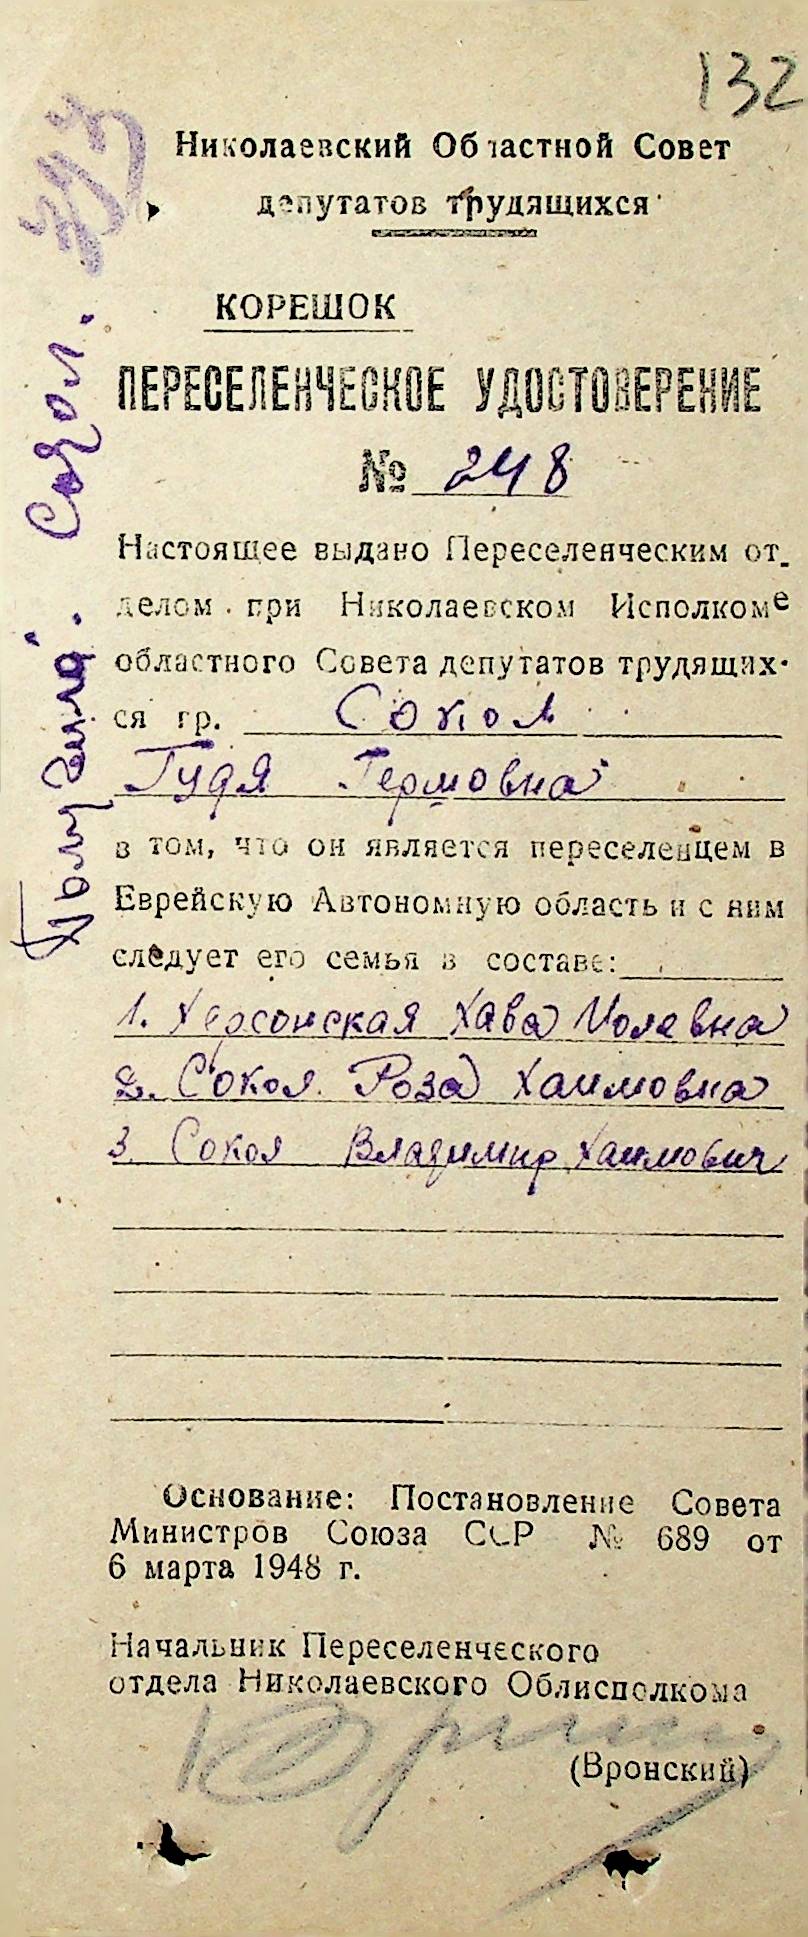 132
Николаевский Областной Совет
депутатов трудящихся
КОРЕШОК
ПЕРЕСЕЛЕНЧЕСКОЕ УДОСТОВЕРЕНИЕ
№ 248
Настоящее выдано Переселенческим от-
делом при Николаевском Исполкоме
областного Совета депутатов трудящих-
ся гр. Сокол
Гудя Гермовна
в том, что он является переселенцем в
Еврейскую Автономную область и с ним
следует его семья в составе:
1. Херсонская Хава Иолевна
2. Сокол Роза Хаимовна
3. Сокол Владимир Хаимович
Основание: Постановление Совета
Министров Союза ССР № 689 от
6 марта 1948 г.
Начальник Переселенческого
отдела Николаевского Облисполкома
(Вронский)
Получила. Сокол.